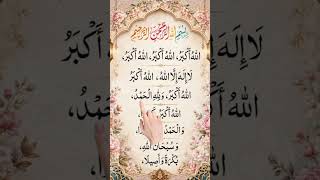 بِسْمِ اللهِ الرَّحْمٰنِ الرَّحِيْمِ
اللهُ أَكْبَرُ، اللهُ أَكْبَرُ، اللهُ أَكْبَرُ،
لَا إِلَهَ إِلَّا اللهُ، اللهُ أَكْبَرُ
اللهُ أَكْبَرُ، وَلِلهِ الْحَمْدُ،
اللهُ أَكْبَرُ
وَالْحَمْدُ
وَسُبْحَانَ اللهِ،
بُكْرَةً وَأَصِيلًا،
لَا إِلَهَ
أَكْبَرُ